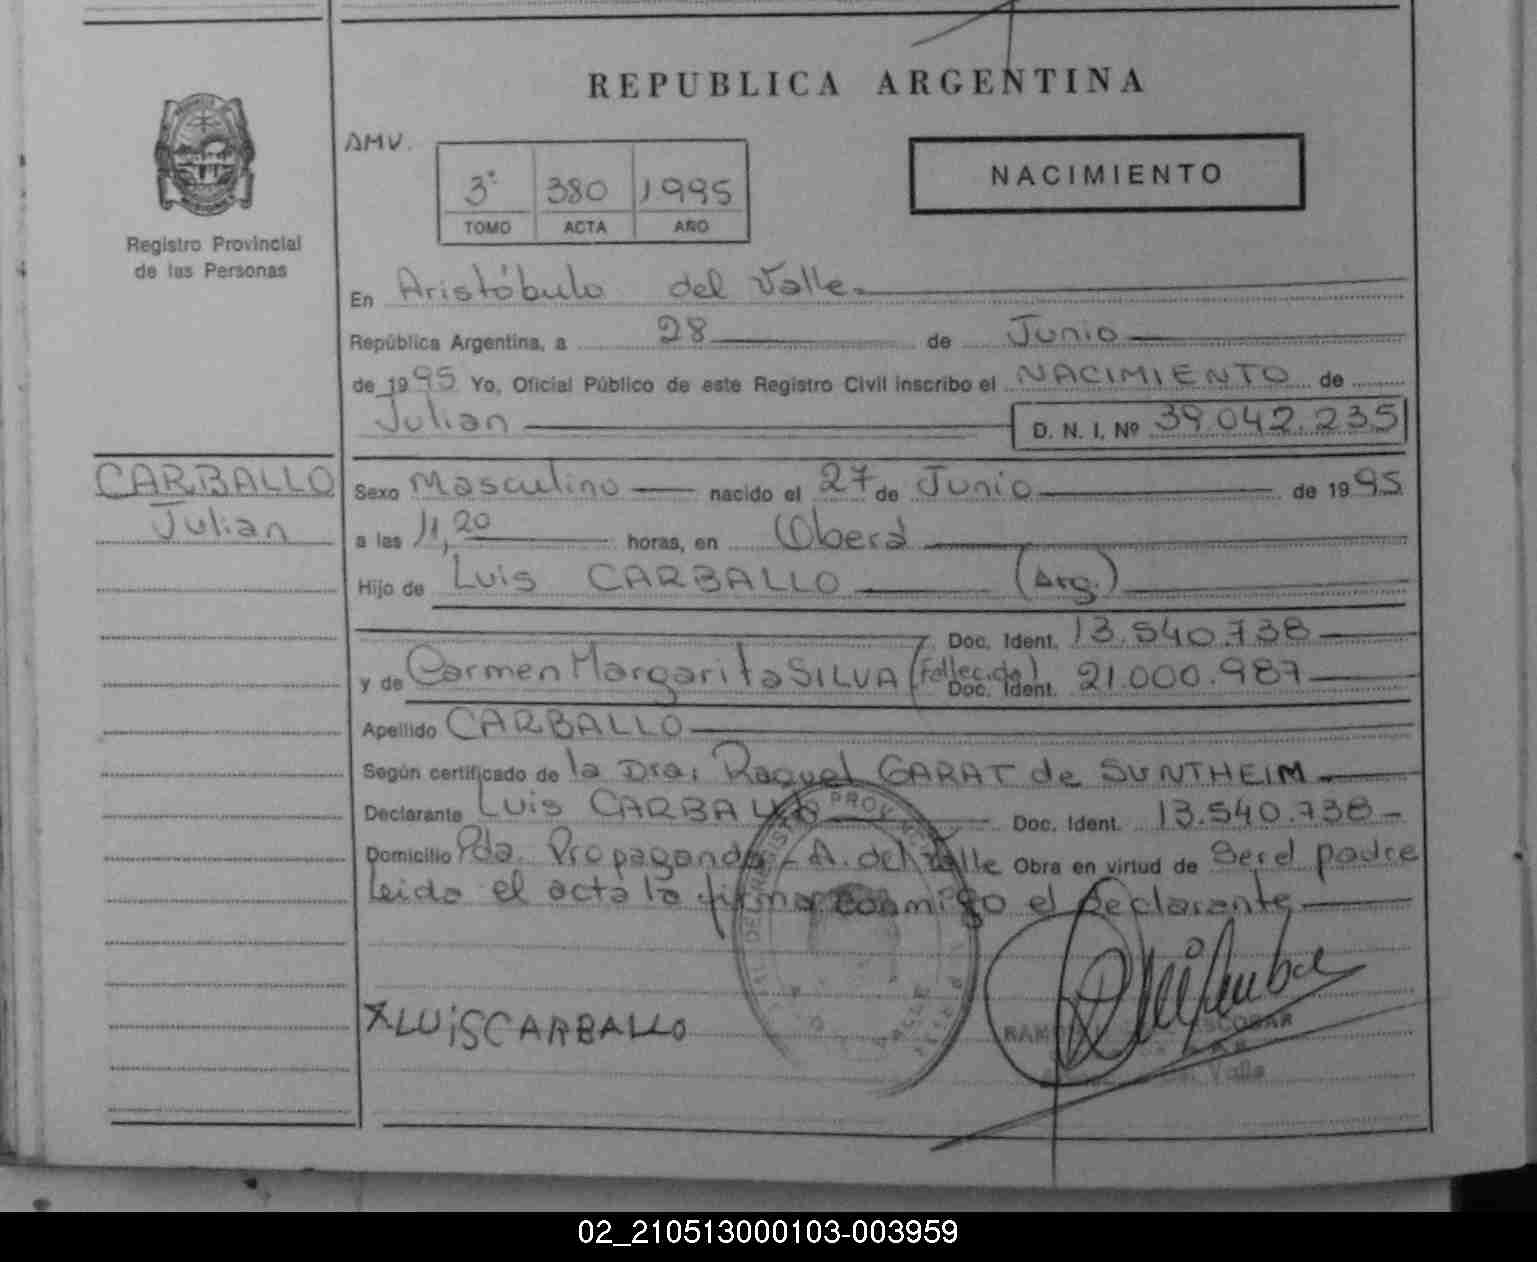 REPUBLICA ARGENTINA
AMV.
3° 380 1.995
TOMO ACTA AÑO
NACIMIENTO
Registro Provincial
de las Personas
En Aristóbulo del Valle.
República Argentina, a 28 de Junio
de 1995 Yo, Oficial Público de este Registro Civil inscribo el NACIMIENTO de
Julian D. N. I. Nº 39.042.235
CARBALLO
Julian
Sexo Masculino nacido el 27 de Junio de 1995
a las 11,20 horas, en Oberá
Hijo de Luis CARBALLO (Arg.)
Doc. Ident. 13.540.738
y de Carmen Margarita SILVA (Fallecida) Doc. Ident. 21.000.987
Apellido CARBALLO
Según certificado de la Dra. Raquel GARAT de SUNTHEIM
Declarante Luis CARBALLO Doc. Ident. 13.540.738
Domicilio Pda. Propaganda - A. del Valle Obra en virtud de Ser el padre
leida el acta la firma conmigo el Declarante
X LUiS CARBALLO
ESCOBAR
Valle
02_210513000103-003959